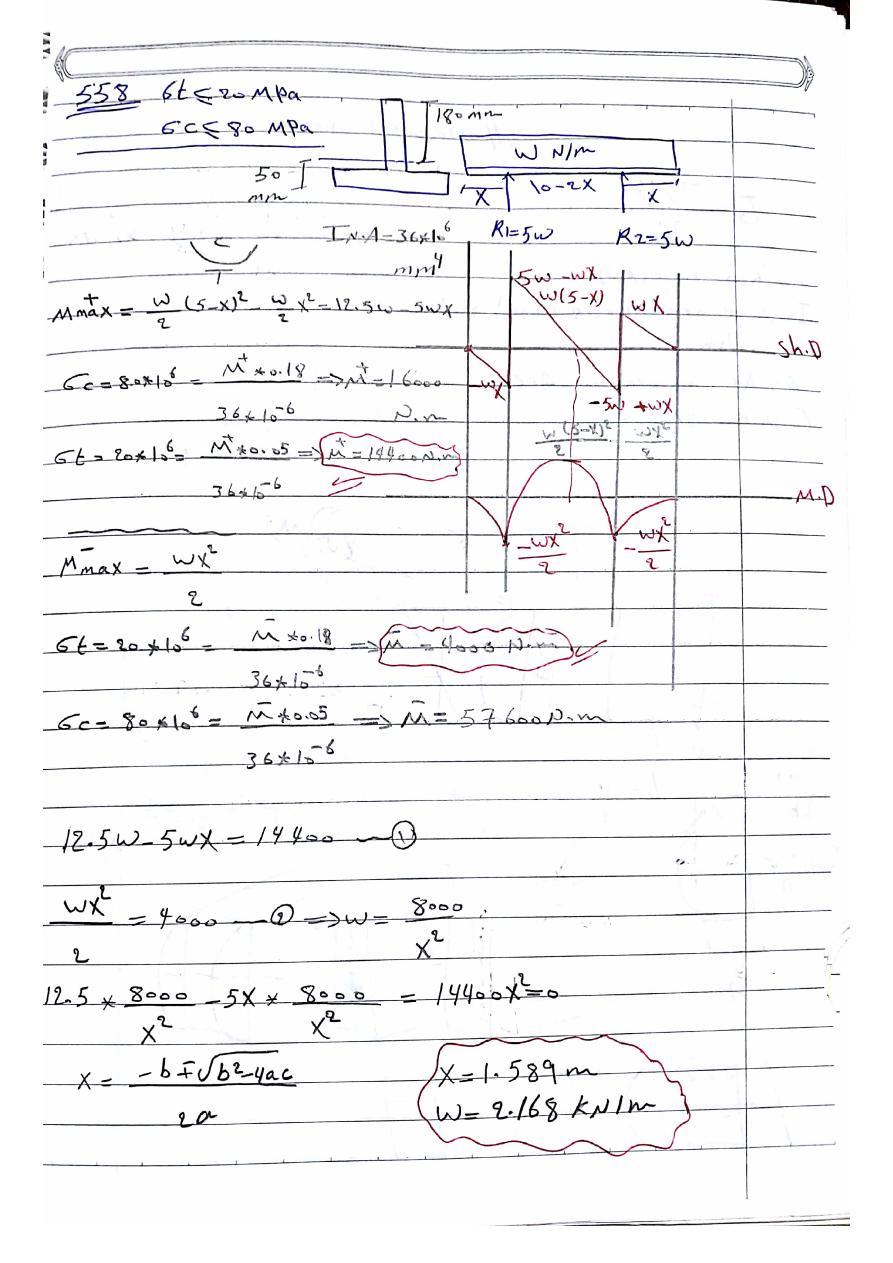 558 σt ≤ 20 MPa
σc ≤ 80 MPa
180 mm
50
mm
W N/m
X
10-2X
X
I N.A = 36*10^6
mm^4
R1=5W
R2=5W
C
T
M+max = W/2 (5-X)^2 - W/2 X^2 = 12.5W - 5WX
5W-WX
W(5-X)
WX
Sh.D
-WX
-5W+WX
σc = 80*10^6 = M+*0.18 / 36*10^-6 => M+ = 16000
N.m
σt = 20*10^6 = M+*0.05 / 36*10^-6 => M+ = 14400 N.m
W(5-X)^2 / 2
WX^2 / 2
M.D
-WX^2 / 2
-WX^2 / 2
M-max = WX^2 / 2
σt = 20*10^6 = M-*0.18 / 36*10^-6 => M- = 4000 N.m
σc = 80*10^6 = M-*0.05 / 36*10^-6 => M- = 57600 N.m
12.5W - 5WX = 14400 — ①
WX^2 / 2 = 4000 — ② => W = 8000 / X^2
12.5 * 8000 / X^2 - 5X * 8000 / X^2 = 14400X^2=0
X = -b ∓ √b^2-4ac / 2a
X = 1.589 m
W = 2.168 kN/m